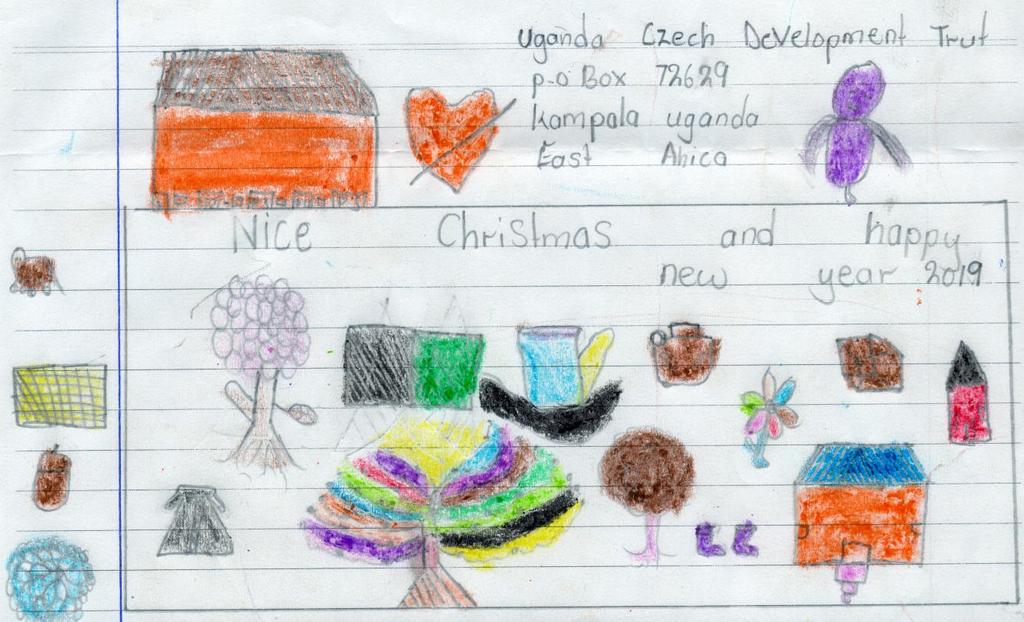 Uganda Czech Development Trut
p-o Box 72629
kampala uganda
East Ahica
Nice Christmas and happy
new year 2019